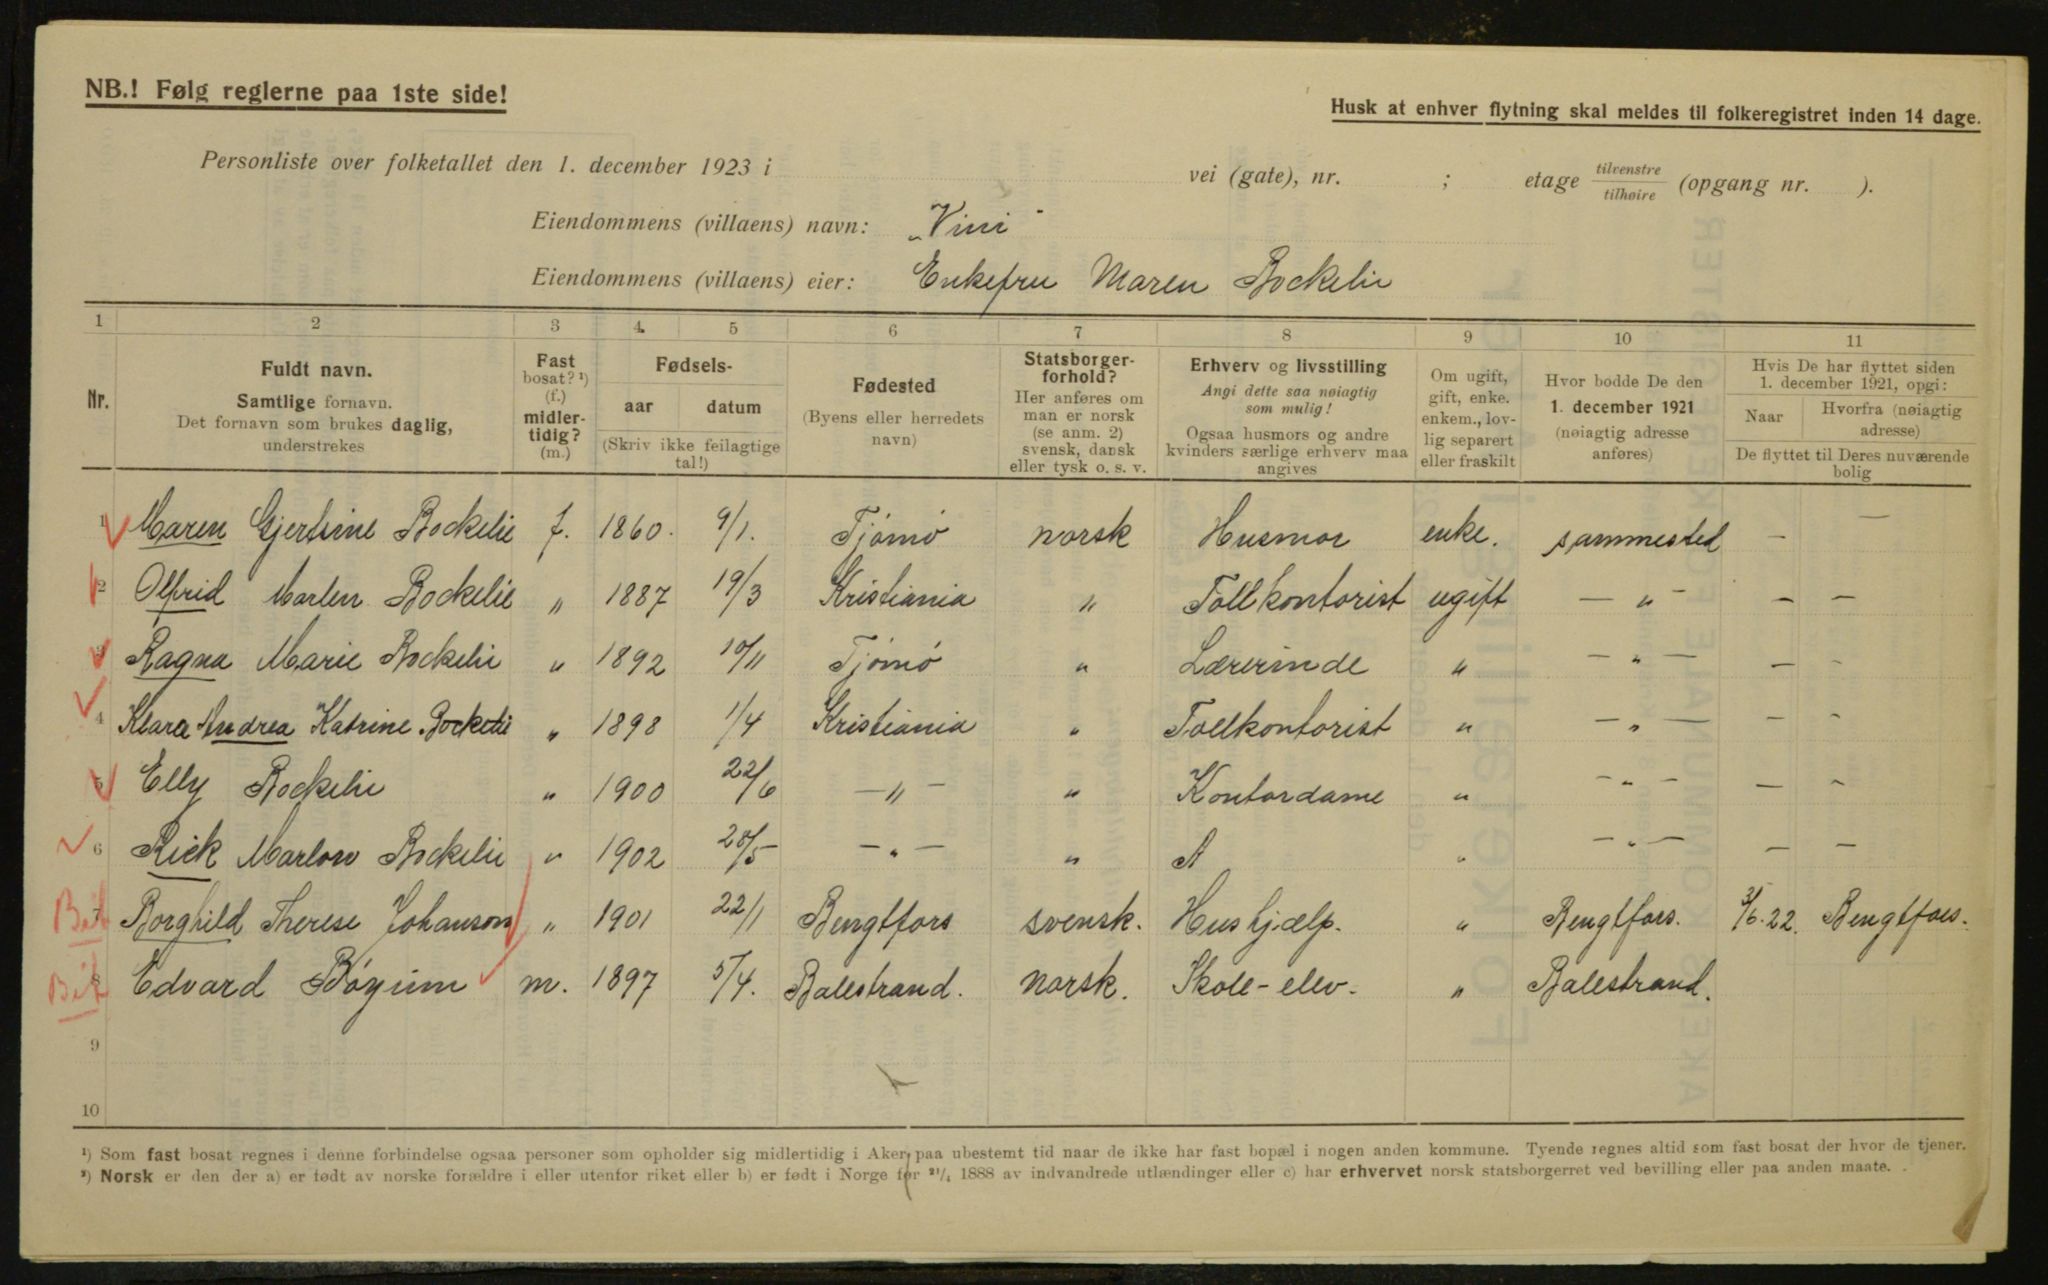 NB.! Følg reglerne paa 1ste side!
Husk at enhver flytning skal meldes til folkeregistret inden 14 dage.
Personliste over folketallet den 1. december 1923 i vei (gate), nr. ; etage tilvenstre/tilhøire (opgang nr. ).
Eiendommens (villaens) navn: „Vini"
Eiendommens (villaens) eier: Enkefru Maren Bockelie
1 2 3 4. 5 6 7 8 9 10 11
Nr.
Fuldt navn.
Samtlige fornavn.
Det fornavn som brukes daglig,
understrekes
Fast
bosat? ¹)
(f.)
midler-
tidig?
(m.)
Fødsels-
aar datum
(Skriv ikke feilagtige
tal!)
Fødested
(Byens eller herredets
navn)
Statsborger-
forhold?
Her anføres om
man er norsk
(se anm. 2)
svensk, dansk
eller tysk o. s. v.
Erhverv og livsstilling
Angi dette saa nøiagtig
som mulig!
Ogsaa husmors og andre
kvinders særlige erhverv maa
angives
Om ugift,
gift, enke.
enkem., lov-
lig separert
eller fraskilt
Hvor bodde De den
1. december 1921
(nøiagtig adresse
anføres)
Hvis De har flyttet siden
1. december 1921, opgi:
Naar
Hvorfra (nøiagtig
adresse)
De flyttet til Deres nuværende
bolig
1 Maren Gjertsine Bockelie f. 1860. 9/1. Tjømø norsk Husmor enke. sammested — —
2 Olfrid Marlen Bockelie „ 1887 19/3 Kristiania „ Tollkontorist ugift — „ — — —
3 Ragna Marie Bockelie „ 1892 10/11 Tjømø „ Lærerinde „ — „ — — -
4 Klara Andrea Katrine Bockelie „ 1898 1/4 Kristiania „ Tollkontorist „ — „ — — -
5 Elly Bockelie „ 1900 22/6 — „ — „ Kontordame „ — „ — — -
6 Rick Marlow Bockelie „ 1902 28/5 — „ — „ A „ — „ — — —
7 Borghild Therese Johanson „ 1901 22/1 Bengtfors svensk. Hushjælp. „ Bengtfors. 3/6.22. Bengtfors.
8 Edvard Bøyum m. 1897 5/4. Balestrand. norsk. Skole-elev. „ Balestrand.
9
10
¹) Som fast bosat regnes i denne forbindelse ogsaa personer som opholder sig midlertidig i Aker paa ubestemt tid naar de ikke har fast bopæl i nogen anden kommune. Tyende regnes altid som fast bosat der hvor de tjener.
²) Norsk er den der a) er født av norske forældre i eller utenfor riket eller b) er født i Norge før ²¹/₄ 1888 av indvandrede utlændinger eller c) har erhvervet norsk statsborgerret ved bevilling eller paa anden maate.